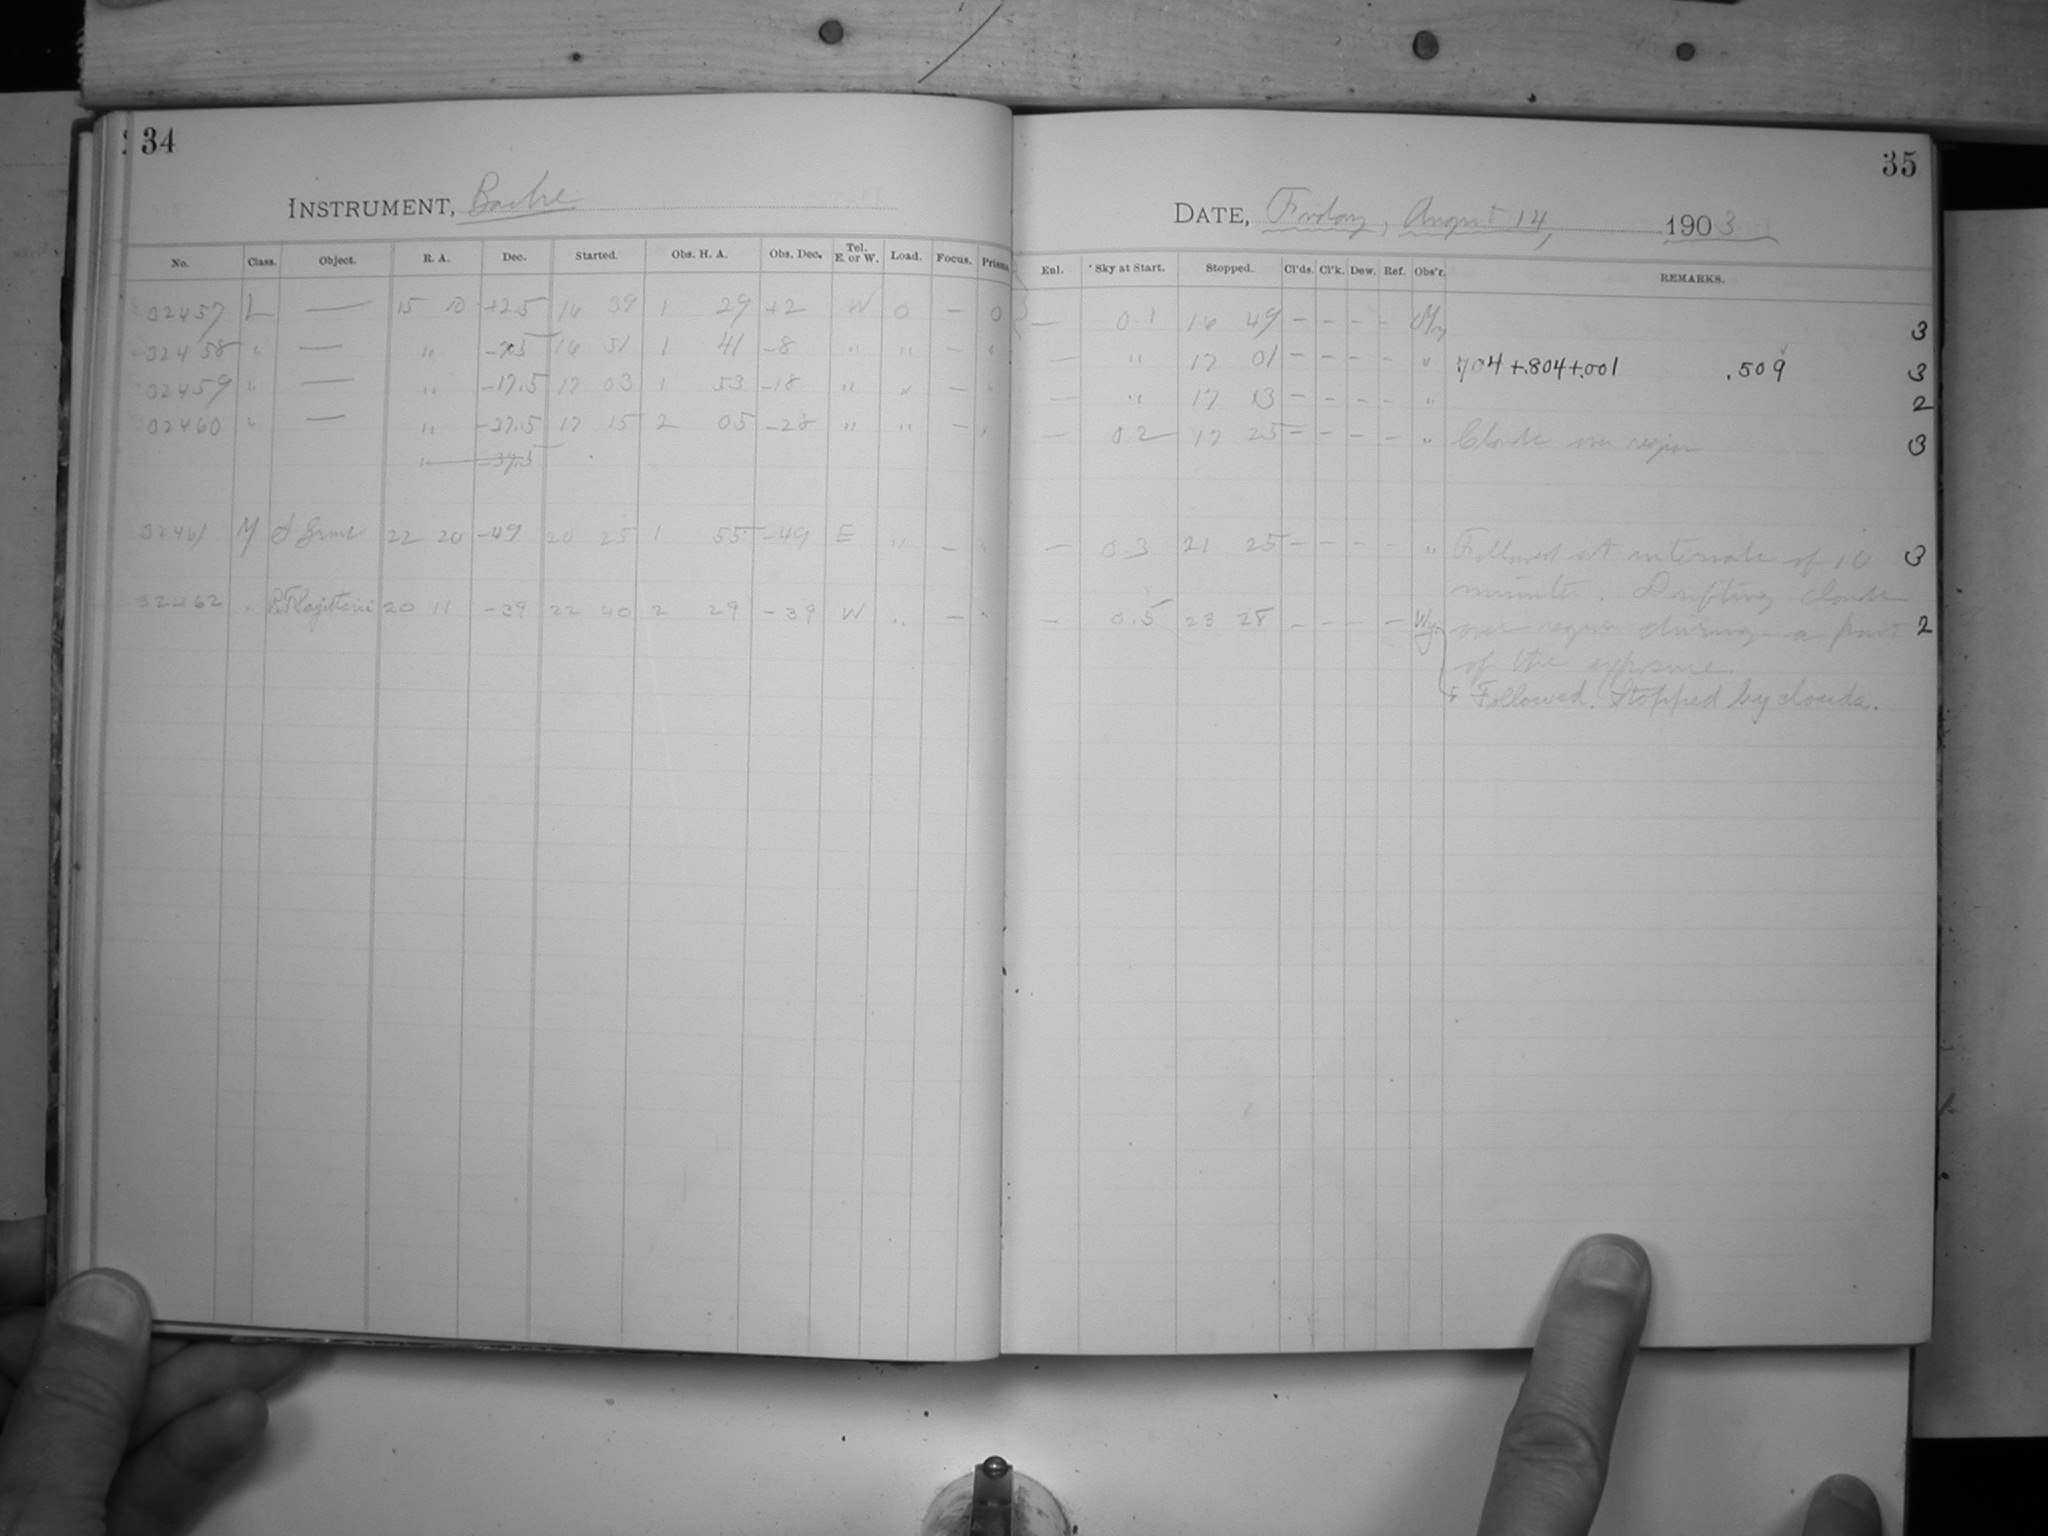 34
INSTRUMENT, Bache
No. Class. Object. R. A. Dec. Started. Obs. H. A. Obs. Dec. Tel. E. or W. Load. Focus. Prism.
32457 L — 15 10 +2.5 16 39 1 29 +2 W 0 — 0
32458 " — " -7.5 16 51 1 41 -8 " " — "
32459 " — " -17.5 17 03 1 53 -18 " " — "
32460 " — " -27.5 17 15 2 05 -28 " " — "
" -37.5
32461 M 22 20 -49 20 25 1 55 -49 E " — "
32462 " R T Sagittarii 20 11 -39 22 40 2 29 -39 W " — "
35
DATE, Friday, August 14, 1903
Enl. Sky at Start. Stopped. Cl'ds. Cl'k. Dew. Ref. Obs'r. REMARKS.
— 0.1 16 49 — — — — 3
— " 17 01 — — — — " 704+.804+.001 .509 3
— " 17 13 — — — — " 2
— 0.2 17 25 — — — — " Clouds over region 3
— 0.3 21 25 — — — — " Followed at intervals of 10 3
minutes. Drifting clouds
— 0.5 23 28 — — — — Wy. over region during a part 2
of the exposure.
Followed. Stopped by clouds.